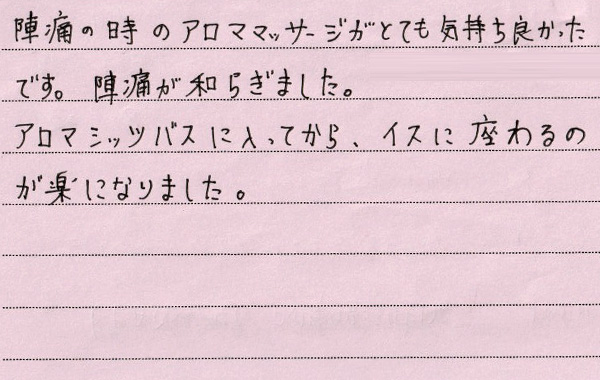 陣痛の時のアロママッサージがとても気持ち良かった
です。陣痛が和らぎました。
アロマシッツバスに入ってから、イスに座わるの
が楽になりました。